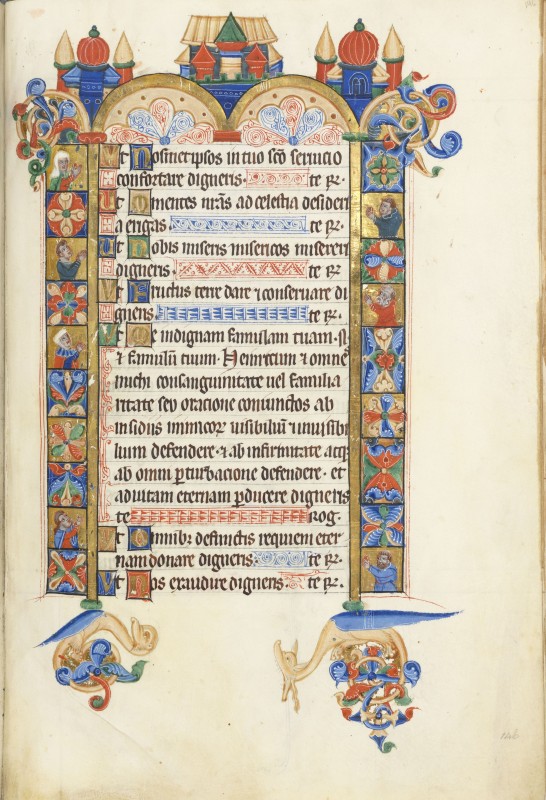 Ut Nosmet ipsos in tuo sco seruicio
confortare digneris. te r.
Ut Mentes nras ad celestia desideri
a erigas. te r.
Ut Nobis miseris misericors misereri
digneris. te r.
Ut Fructus terre dare 7 conseruare di
gneris. te r.
Ut Me indignam famulam tuam. N.
7 famulū tuum. Heinricum 7 omnes
michi consanguinitate uel familia
ritate seu oracione coniunctos ab
insidiis inimicor uisibiliū 7 inuisibi
lium defendere. 7 ab infirmitate atq
ab omni pturbacione defendere. et
ad uitam eternam pducere digneris
te Rog.
Ut Omnib defunctis requiem eter
nam donare digneris. te r.
Ut Nos exaudire digneris. te r.